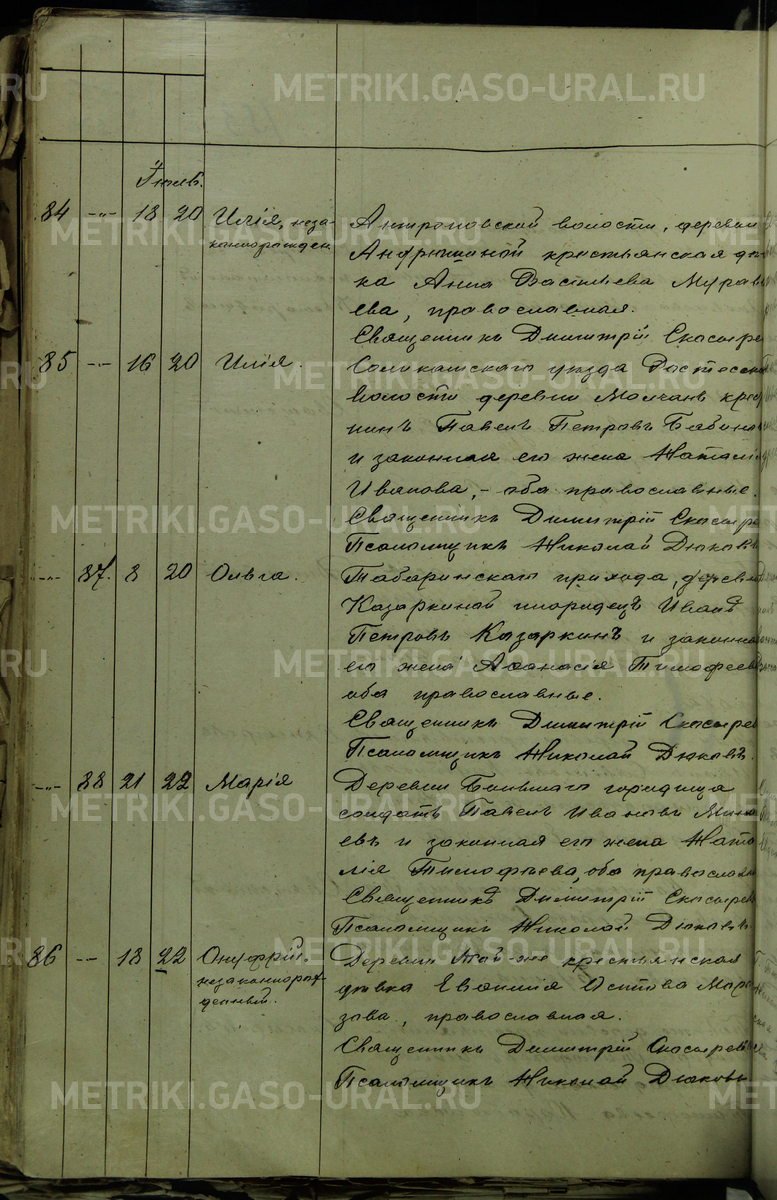 METRIKI.GASO-URAL.RU
Іюль.
84 -"- 18 20 Илія, неза-
коннорожден.
Антроповской волости, деревни
Андрюшиной крестьянская дѣв
ка Анна Васильева Мурав
ева, православная.
Священникъ Димитрій Скосырев
85 -"- 16 20 Илія.
Соликамскаго уѣзда Ростесск
волости деревни Молчанъ крес
нинъ Павелъ Петровъ Бабин
и законная его жена Наталі
Иванова, - оба православные.
Священникъ Димитрій Скосырев
Псаломщикъ Николай Дюковъ
-"- 87. 8 20 Ольга.
Табаринскаго прихода, деревни
Казаркиной инородецъ Иванъ
Петровъ Казаркинъ и законна
его жена Аѳанасія Тимофеев
оба православные.
Священникъ Димитрій Скосырев
Псаломщикъ Николай Дюковъ.
-"- 88 21 22 Марія
Деревни Большаго городища
солдатъ Павелъ Ивановъ Мина
евъ и законная его жена Ната
лія Тимофѣева, оба православн
Священникъ Димитрій Скосырев
Псаломщикъ Николай Дюковъ
86 -"- 18 22 Онуфрій,
незаконнорож-
денный.
Деревни той-же крестьянская
дѣвка Евѳимія Осипова Моро
зова, православная.
Священникъ Димитрій Скосырев
Псаломщикъ Николай Дюковъ